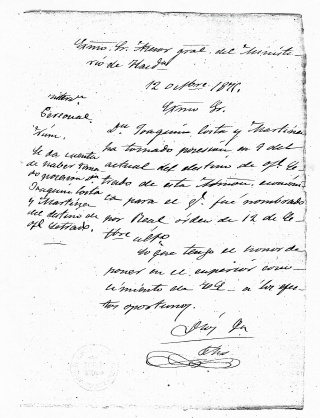 Exmo. Sr. Asesor gral. del Ministe-
rio de Hacda
12 octbre. 1876.
Exmo Sr.
Personal.
Núm.
Se da cuenta
de haber toma-
do posesión Dn
Joaquín Costa
y Martínez
del destino de
ofl. Letrado.
Dn. Joaquín Costa y Martínez
ha tomado posesión en 9 del
actual del destino de ofl. Le-
trado de esta Admon. económi-
ca para el q. fué nombrado
por Real órden de 12 de
bre último
Lo que tengo el honor de
poner en el superior cono-
cimiento de VE. a los efec-
tos oportunos.
Dios